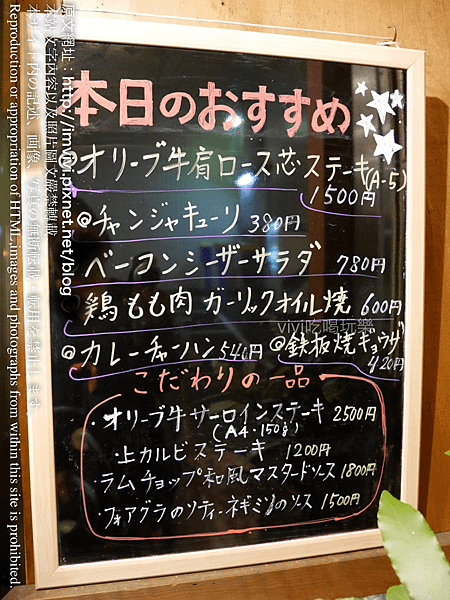 本日のおすすめ
@オリーブ牛肩ロース芯ステーキ(A-5)
1500円
@チャンジャキューリ 380円
ベーコンシーザーサラダ 780円
鶏もも肉ガーリックオイル焼 600円
@カレーチャーハン540円 @鉄板焼ギョウザ
420円
こだわりの一品
・オリーブ牛サーロインステーキ 2500円
(A4・150g)
・上カルビステーキ 1200円
・ラムチョップ和風マスタードソース 1800円
・フォアグラのソティーネギミソのソース 1500円
vivi吃喝玩樂
原文網址：http://imvivi.pixnet.net/blog
本站文字內容以及照片圖文嚴禁轉載
本サイト内の記述、画像、写真の無断転載・転用を禁止します
Reproduction or appropriation of HTML,images and photographs from within this site is prohibited.